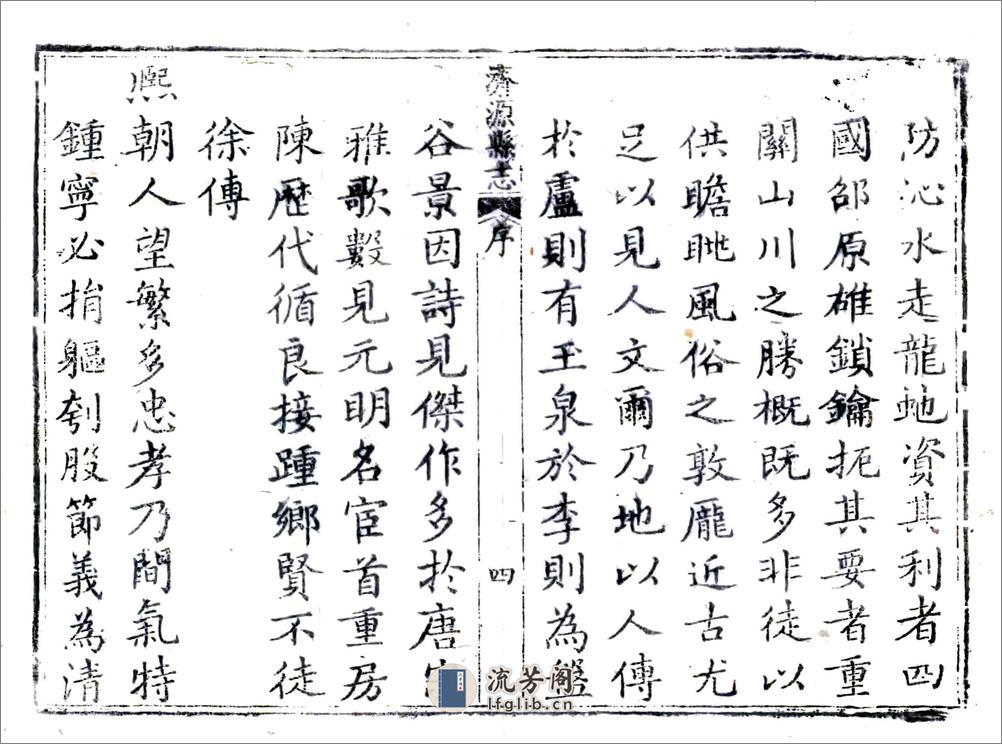 防沁水走龍虵資其利者四
國邵原雄鎖鑰扼其要者重
關山川之勝概既多非徒以
供瞻眺風俗之敦龎近古尤
足以見人文爾乃地以人傳
於盧則有玉泉於李則為盤
濟源縣志 序 四
谷景因詩見傑作多扵唐
雅歌數見元明名宦首重房
陳歷代循良接踵鄉賢不徒
徐傅
熈朝人望繁多忠孝乃間氣特
鍾寧必捐軀刳股節義為清
流芳阁
lfglib.cn